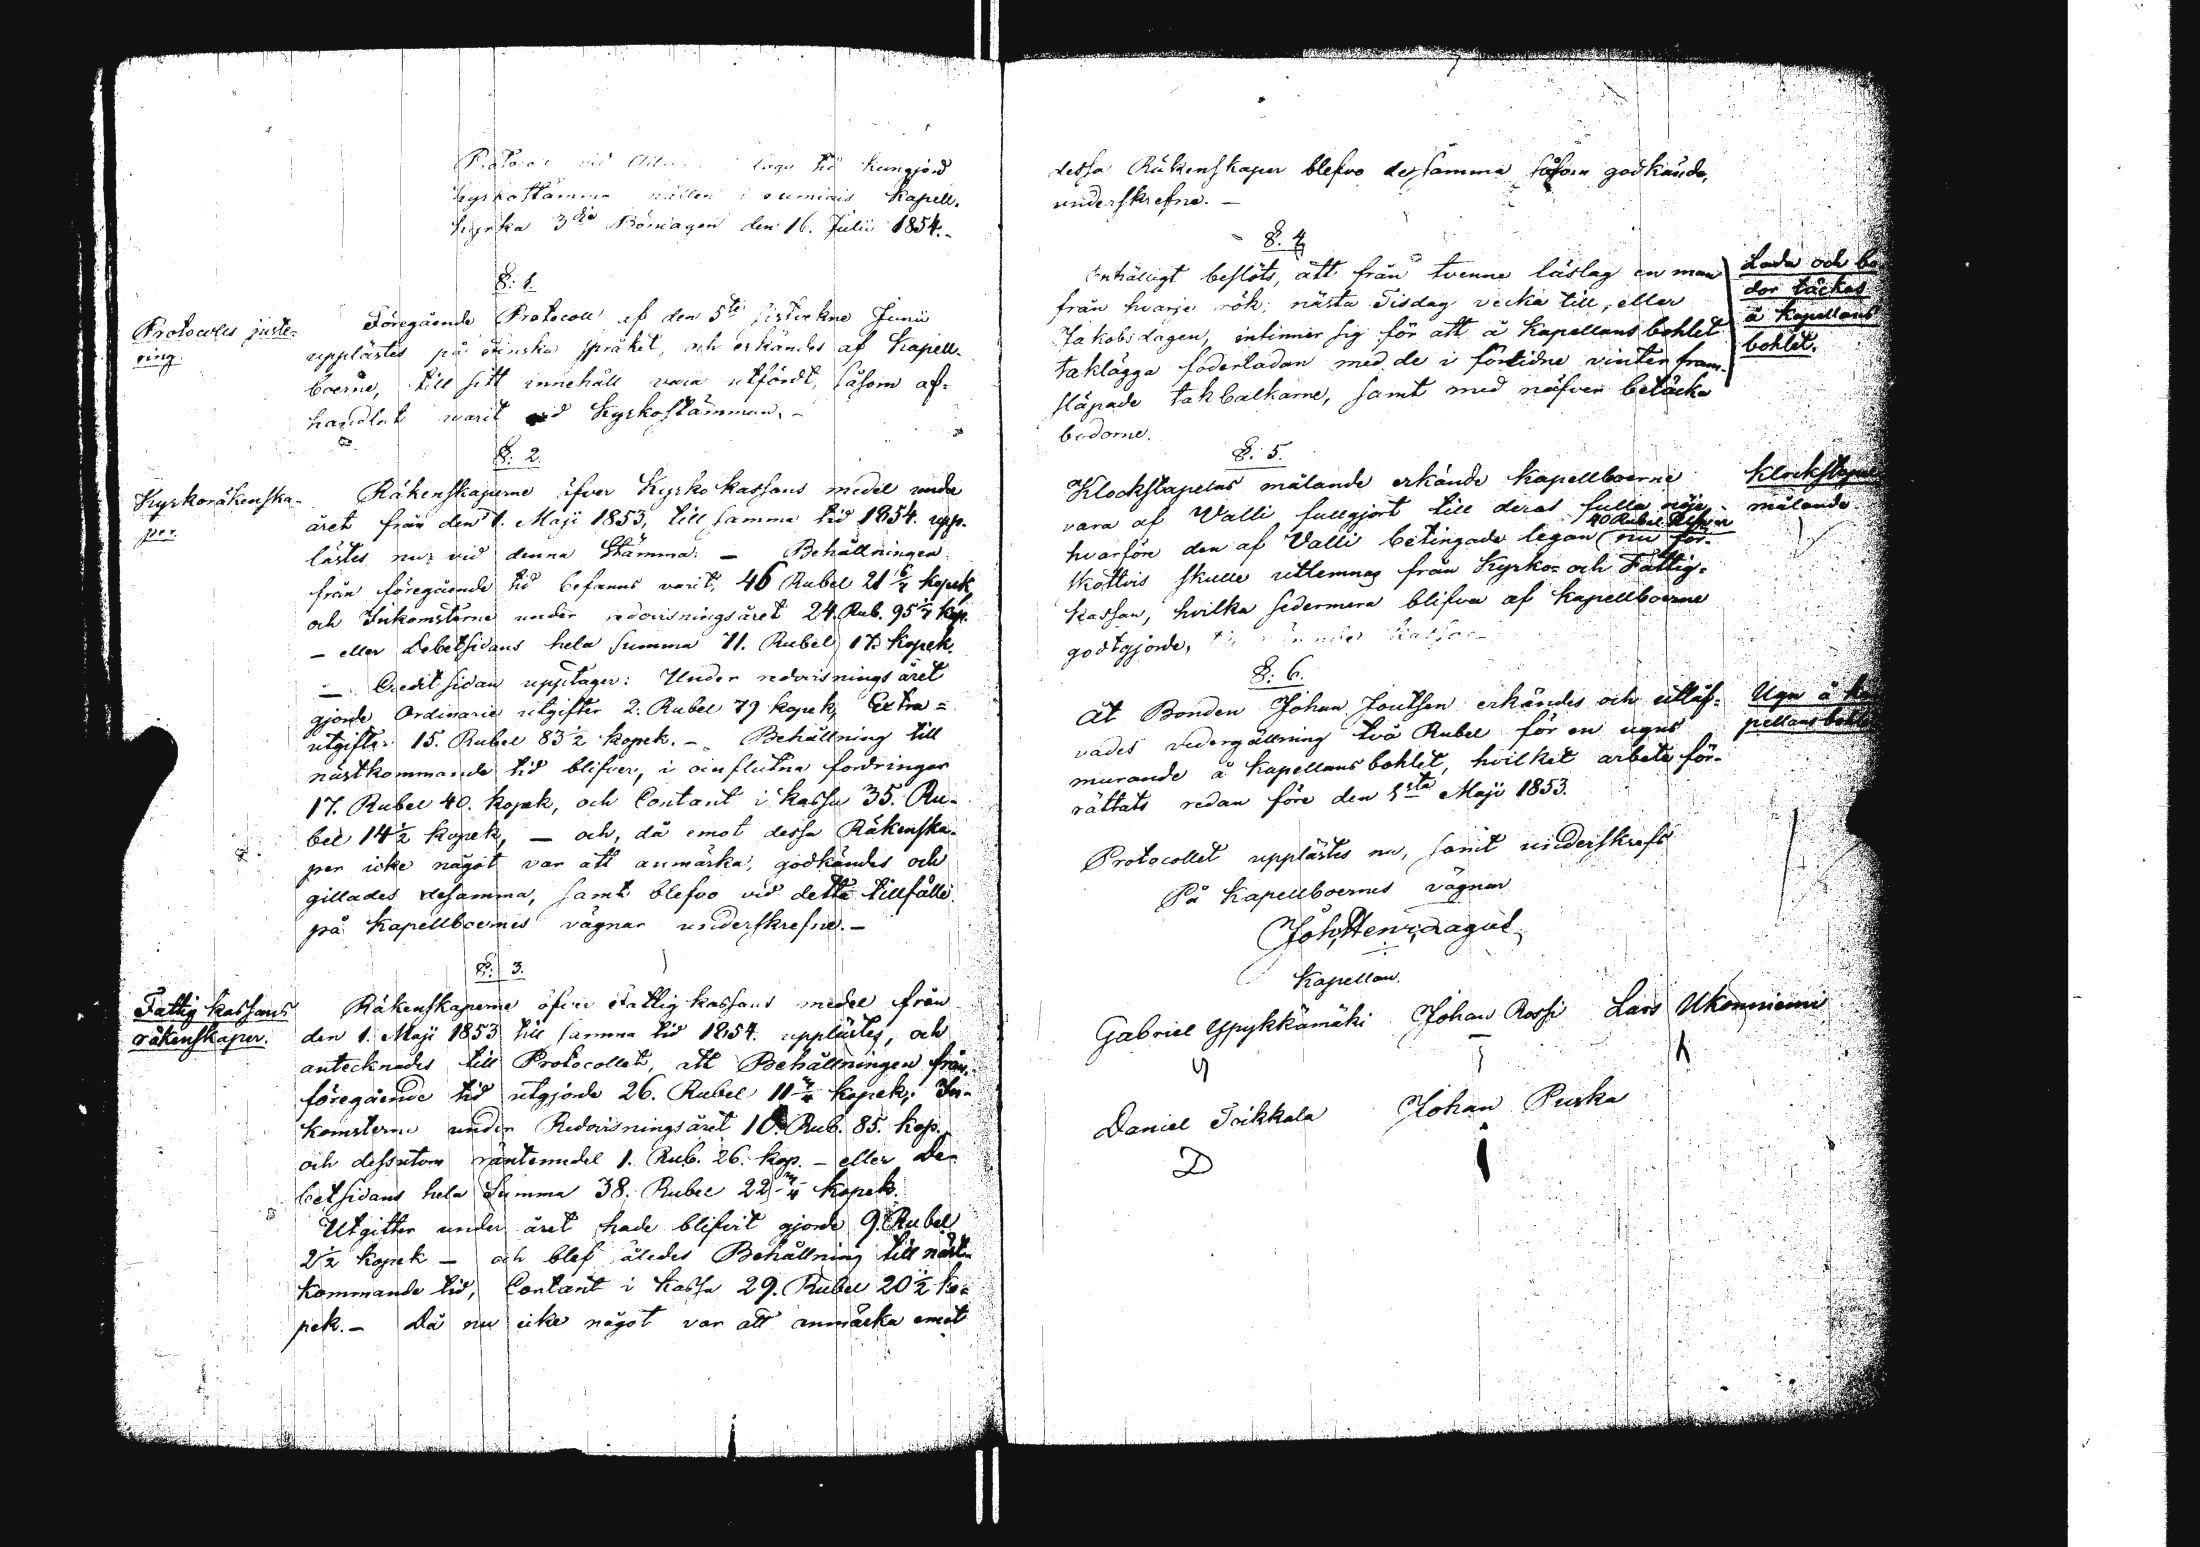 Protocoll vid laga tid kungjord
Kyrkostämma hållen i Kapell-
kyrka 3die Böndagen den 16. Julii 1854.-
§: 1.
Protocolls juste-
ring.
Föregående Protocoll af den 5te sistvikne Junii
upplästes på Finska språket, och erkändes af Kapell-
boerne, till sitt innehåll vara utfördt, såsom af-
handlat warit vid Kyrkostämman.-
§: 2.
Kyrkoräkenska-
per.
Räkenskaperne öfver Kyrko kassans medel under
året från den 1. Maji 1853, till samma tid 1854. upp-
lästes nu vid denna Stämma. - Behållningen
från föregående tid befanns varit, 46 Rubel 21 kopek,
och Inkomsterne under redovisningsåret 24. Rub. 95 kop.
- eller Debetsidans hela summa 71. Rubel 17 kopek.
- Creditsidan upptager: Under redovisningsåret
gjorde Ordinarie utgifter 2. Rubel 79 kopek, Extra=
utgifter 15. Rubel 83½ kopek. - Behållning till
nästkommande tid blifver, i oinflutna fordringar
17. Rubel 40. kopek, och Contant i kassa 35. Ru-
bel 14½ kopek, - och, då emot dessa Räkenska-
per icke något var att anmärka, godkändes och
gillades desamma, samt blefvo vid detta tillfälle
på Kapellboernes vägnar underskrefne.-
§: 3.
Fattig kassans
räkenskaper.
Räkenskaperne öfver Fattig kassans medel från
den 1. Maji 1853 till samma tid 1854. upplästes, och
antecknades till Protocollet, att Behållningen från
föregående tid utgjorde 26. Rubel 11 kopek; In-
komsterne under Redovisningsåret 10. Rub. 85. kop.
och dessutom räntemedel 1. Rub. 26. kop. - eller De-
betsidans hela Summa 38. Rubel 22 kopek.
Utgifter under året hade blifvit gjorde 9. Rubel
2½ kopek - och blef således Behållning till näst-
kommande tid, Contant i kassa 29. Rubel 20½ ko-
pek.- Då nu icke något var att anmärka emot
dessa Räkenskaper blefvo desamma såsom godkände,
underskrefne. -
§. 4
Lada och bo-
dor täckas
å kapellans
bohlet.
Enhälligt beslöts, att från tvenne läslag en man
från hvarje rök, nästa Tisdag vecka till, eller
Jakobsdagen, infinner sig för att å Kapellans bohlet
taklägga foderladan med de i förtidne vinter fram-
släpade takbalkarne, samt med näfver betäcka
bodorne.
§: 5.
Klockstapelns
målande
Klockstapelns målande erkände Kapellboerne
vara af Valli fullgjort till deras fulla nöje,
hvarföre den af Valli betingade legan 40 Rubel Silfver nu för-
skottvis skulle utlemnas från Kyrko- och Fattig-
kassan, hvilka sedermera blifva af Kapellboerne
godtgjorde,
§: 6.
Ugn å ka-
pellans bohlet
Åt Bonden Johan Joutsen erkändes och utlof-
vades vedergällning två Rubel för en ugns
murande å Kapellans bohlet, hvilket arbete för-
rättats redan före den 1sta Maji 1853.
Protocollet upplästes nu, samt underskrefs
På Kapellboernes vägnar
Joh. Henr.
Kapellan.
Gabriel Ypykkämäki Johan Rossi Lars Ukonniemi
Daniel Toikkala Johan Puska
D